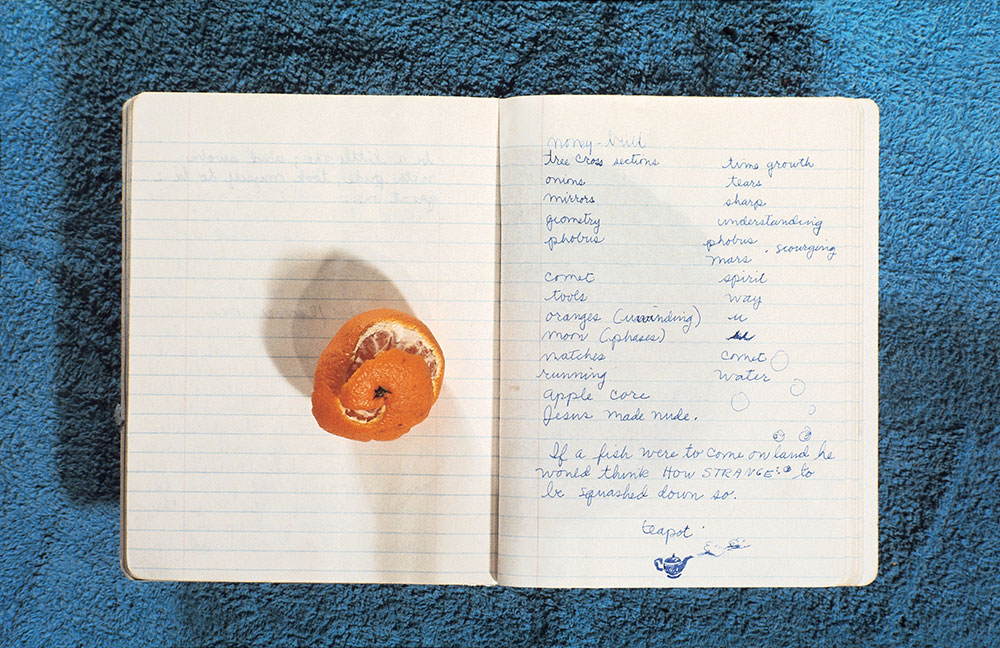 tree cross sections time growth
onions tears
mirrors sharp
geometry understanding
phobus phobus . scourging
mars
comet spirit
tools way
oranges (unwinding) u
moon (phases)
matches comet
running water
apple core
Jesus made nude.
If a fish were to come on land he
would think HOW STRANGE to
be squashed down so.
teapot